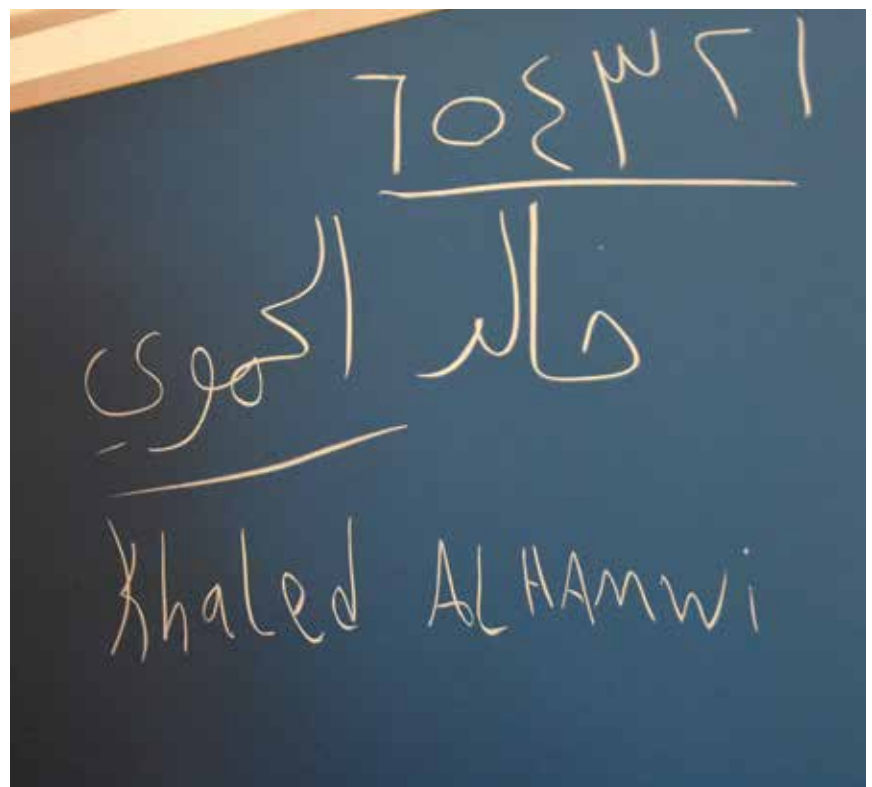 ٦٥٤٣٢١
خالد الحموي
Khaled ALHAMWi